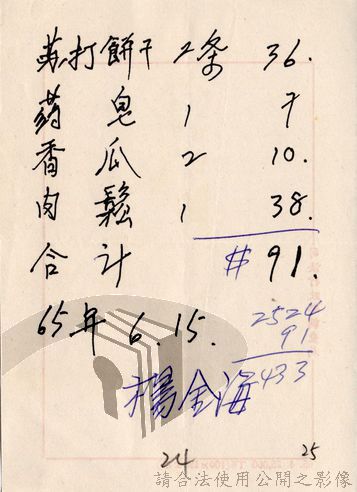 苏打餅干 2条 36.
药皂 1 7
香瓜 2 10.
肉鬆 1 38.
合計 # 91.
65年 6.15.
2524
91
2433
楊金海
24
25
請合法使用公開之影像